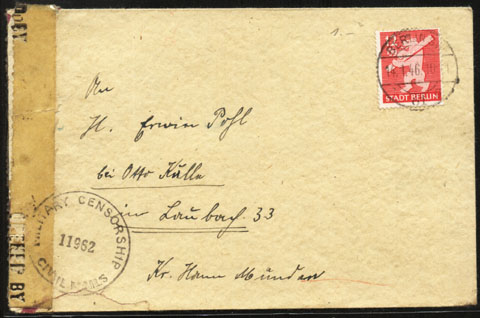 1.-
BERLIN
1.46
12
STADT BERLIN
An
H. Erwin Pohl
bei Otto Kulle
in Laubach 33
Kr. Hann Münden
MILITARY CENSORSHIP
11962
CIVIL MAILS
BY